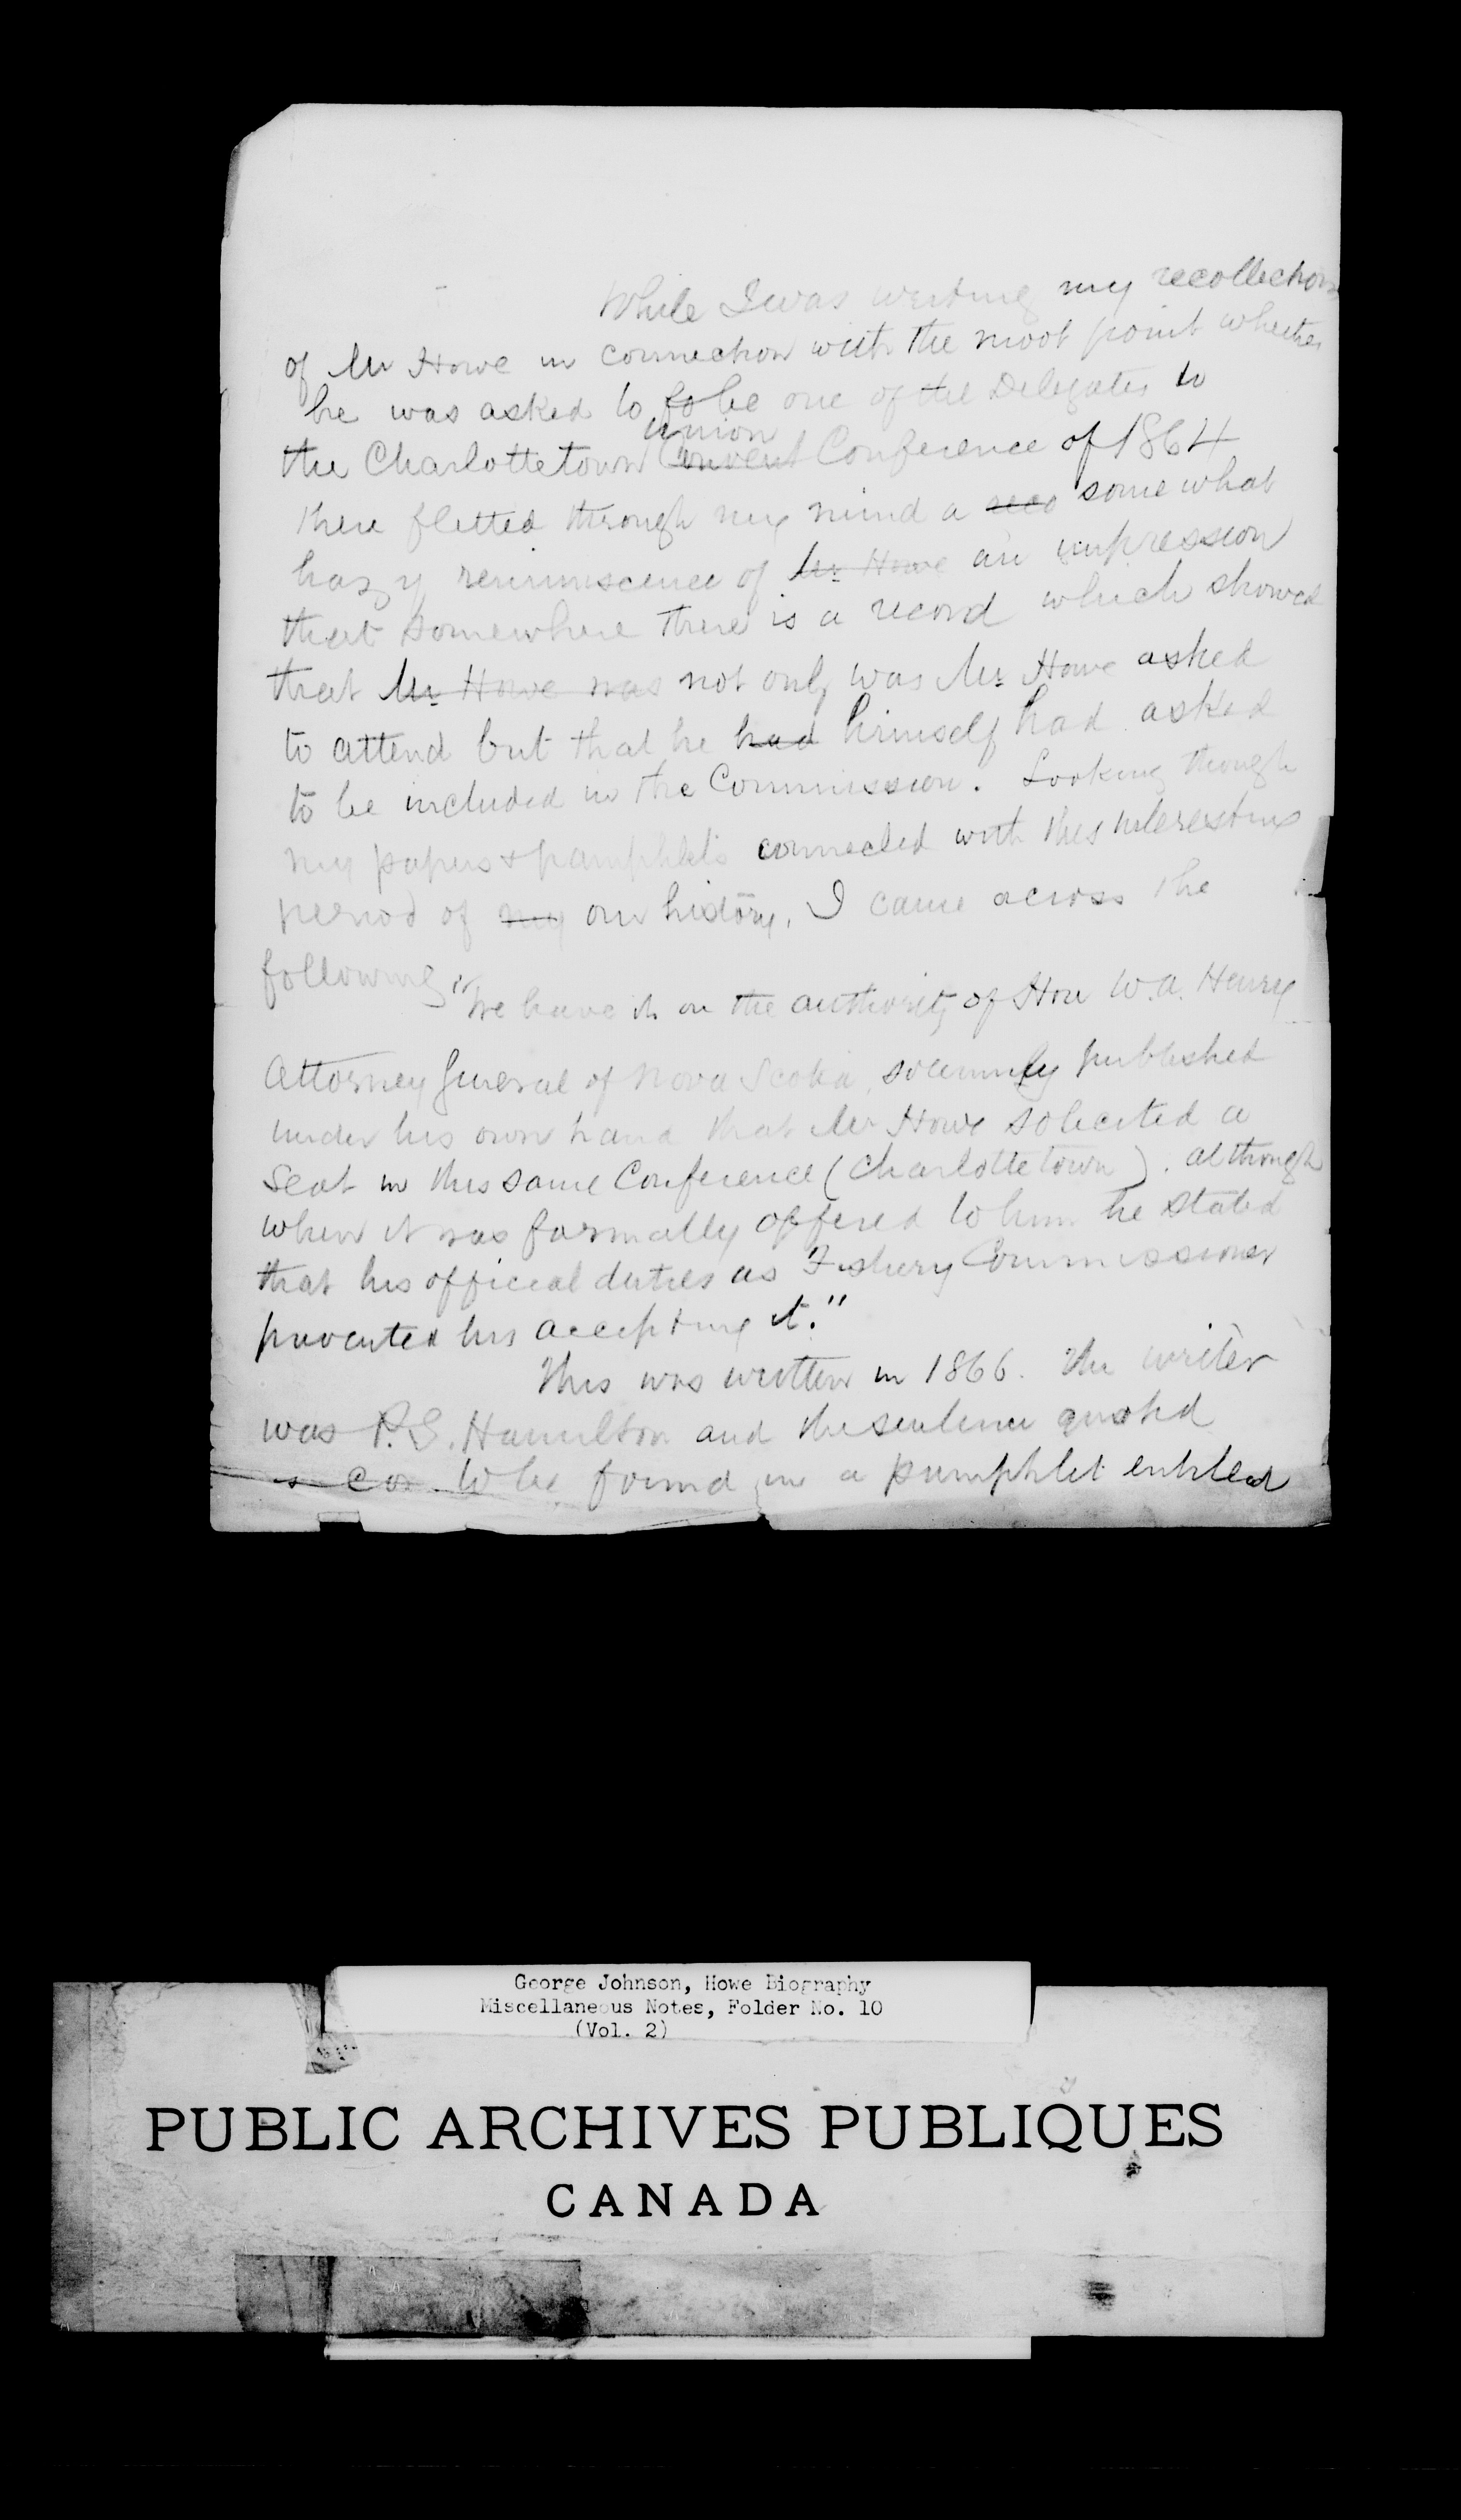 While I was writing my recollections
of Mr Howe in connection with the moot point whether
he was asked to to be one of the Delegates to
Union
the Charlottetown Convent Conference of 1864
there flitted through my mind a reco some what
hazy reminiscence of Mr Howe an impression
that somewhere there is a record which showed
that Mr Howe was not only was Mr Howe asked
to attend but that he had himself had asked
to be included in the Commission. Looking through
my papers & pamphlets connected with this interesting
period of my our history, I came across the
following
"We have it on the authority of Hon W.A. Henry
Attorney General of Nova Scotia, solemnly published
under his own hand that Mr Howe solicited a
Seat in this same Conference (Charlottetown). although
when it was formally offered to him he stated
that his official duties as Fishery Commissioner
prevented his accepting it."
This was written in 1866. The writer
was P.S. Hamilton and the sentence quoted
is con to be found in a pamphlet entitled
George Johnson, Howe Biography
Miscellaneous Notes, Folder No. 10
(Vol. 2)
PUBLIC ARCHIVES PUBLIQUES
CANADA